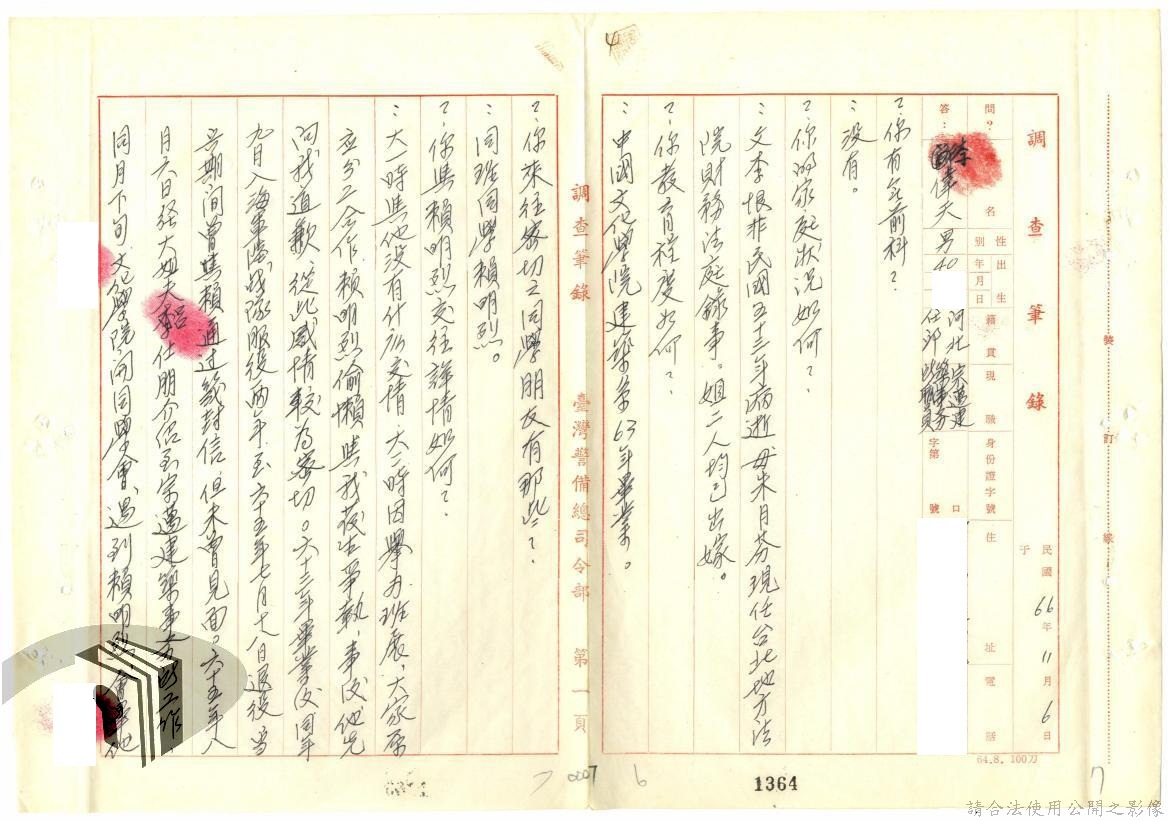 調查筆錄
民國66年11月6日
于
問?
答:
姓名
性別
出生年月日
籍貫
現職
身份證字號
住址
電話
偉天
男
40
河北
宗邁建
築事務
所職員
任邱
字第 號
口
?你有無前科?
:沒有。
?你的家庭狀況如何?
:父李恨非民國五十三年病逝母米月芬現任台北地方法
院財務法庭錄事。姐二人均已出嫁。
?你教育程度如何?
:中國文化學院建築系63年畢業。
64.8. 100刀
1364
裝
訂
線
7
4
6
調查筆錄 臺灣警備總司令部 第一頁
0007
?你來往密切之同學朋友有那些?
:同班同學賴明烈。
?你與賴明烈交往詳情如何?
:大一時與他沒有什麼交情,大二時因舉办班展,大家原
應分工合作,賴明烈偷懶與我發生爭執,事後他先
向我道歉,從此感情較為密切。六十三年畢業後同年
九月入海軍陸戰隊服役兩年,至六十五年七月十八日退役,當
兵期间曾與賴通过幾封信,但未曾見面。六十五年八
月六日经大姐夫呂仕朋介绍至宗邁建築事务所工作,
同月下旬,文化學院開同學會,遇到賴明烈,
請合法使用公開之影像